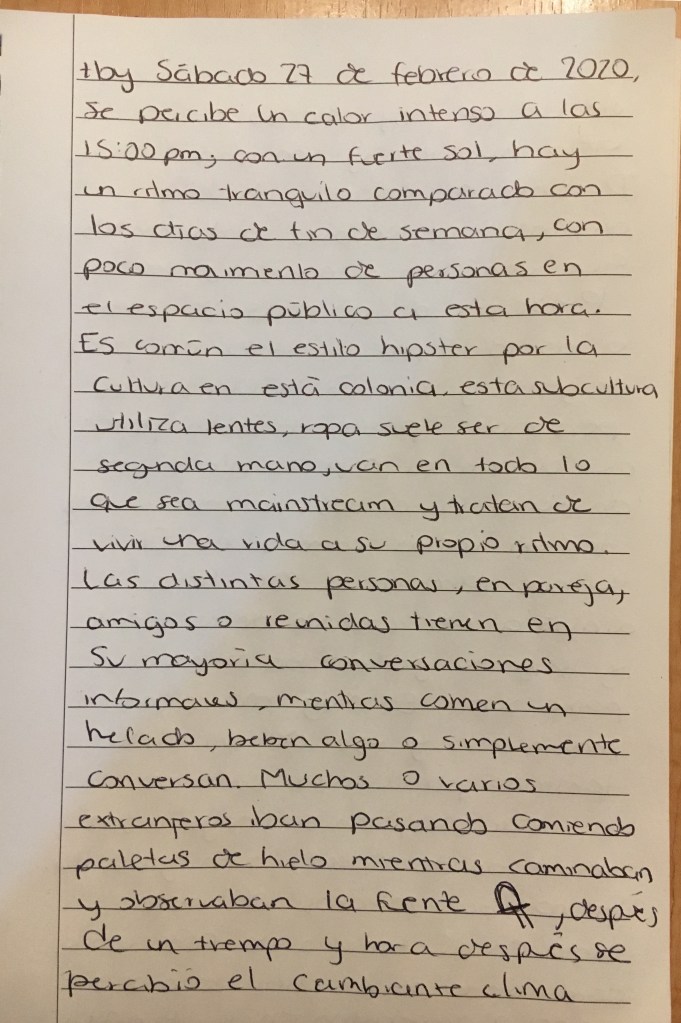 Hoy Sábado 27 de febrero de 2020,
se percibe un calor intenso a las
15:00 pm; con un fuerte sol, hay
un ritmo tranquilo comparado con
los dias de fin de semana, con
poco movimiento de personas en
el espacio público a esta hora.
Es común el estilo hipster por la
cultura en está colonia, esta subcultura
utiliza lentes, ropa suele ser de
segunda mano, van en todo lo
que sea mainstream y tratan de
vivir una vida a su propio ritmo.
Las distintas personas, en pareja,
amigos o reunidas tienen en
su mayoria conversaciones
informales, mientras comen un
helado, beben algo o simplemente
conversan. Muchos o varios
extranjeros iban pasando comiendo
paletas de hielo mientras caminaban
y observaban la fuente, después
de un tiempo y hora después se
percibió el cambiante clima